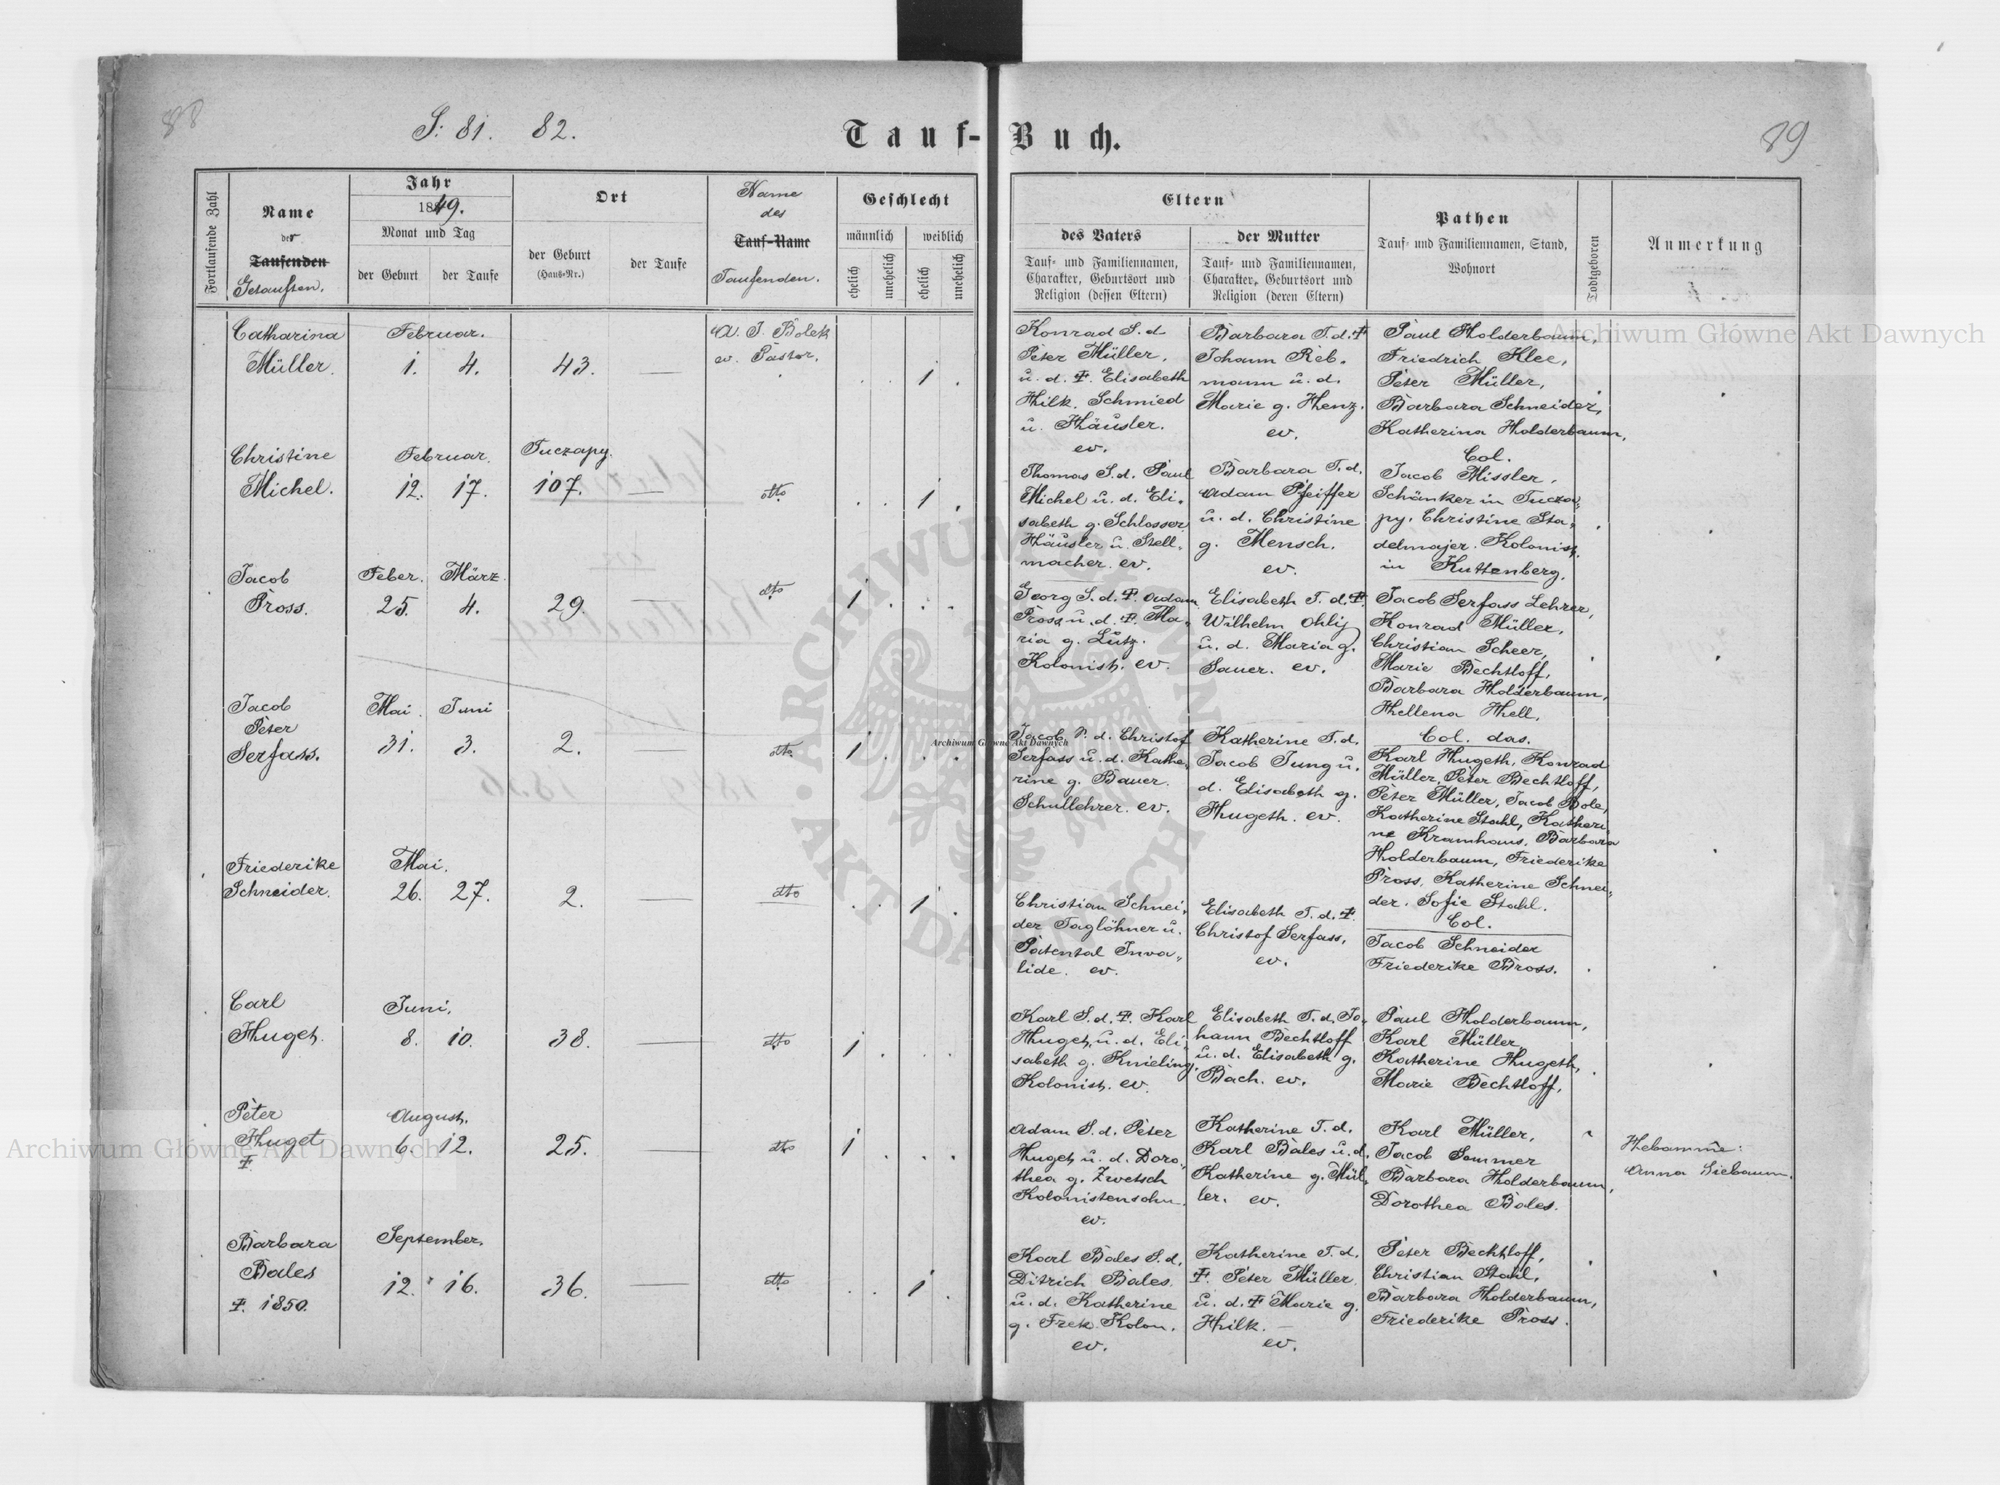 88
S: 81. 82.
Tauf-Buch.
89
Fortlaufende Zahl
Name
der
Taufenden
Getauften.
Jahr
1849.
Monat und Tag
der Geburt
der Taufe
Ort
der Geburt
(Haus-Nr.)
der Taufe
Name
des
Tauf-Name
Taufenden.
Geschlecht
männlich
weiblich
ehelich
unehelich
ehelich
unehelich
Eltern
des Vaters
Tauf- und Familiennamen,
Charakter, Geburtsort und
Religion (dessen Eltern)
der Mutter
Tauf- und Familiennamen,
Charakter, Geburtsort und
Religion (deren Eltern)
Pathen
Tauf- und Familiennamen, Stand,
Wohnort
Todtgeboren
Anmerkung
Catharina
Müller.
Februar.
1. 4.
43.
A. J. Bolek
ev. Pastor.
1
Konrad S. d
Peter Müller.
u. d. ✝. Elisabeth
Hilk. Schmied
u. Häusler.
ev.
Barbara T. d. ✝
Johann Reb.
mann u. d.
Marie g. Henz.
ev.
Paul Holderbaum,
Friedrich Klee,
Peter Müller,
Barbara Schneider,
Katherina Holderbaum,
Col.
Christine
Michel.
Februar.
12. 17.
Tuczapy.
107.
dto
1
Thomas S. d. Paul
Michel u. d. Eli-
sabeth g. Schlosser
Häusler u. Stell-
macher. ev.
Barbara T. d.
Adam Pfeiffer
u. d. Christine
g. Mensch.
ev.
Jacob Missler,
Schänker in Tucza-
py. Christine Sta-
delmajer. Kolonist.
in Kuttenberg.
Jacob
Pross.
Feber. März.
25. 4.
29.
dto
1
Georg S. d. ✝. Adam
Pross u. d. ✝. Ma-
ria g. Lutz.
Kolonist. ev.
Elisabeth T. d. ✝.
Wilhelm Ohlig
u. d. Maria g.
Sauer. ev.
Jacob Serfass Lehrer,
Konrad Müller,
Christian Scheer,
Marie Bechtloff,
Barbara Holderbaum,
Hellena Hell,
Col. das.
Jacob
Peter
Serfass.
Mai. Juni
31. 3.
2.
dto
1
Jacob S. d. Christof
Serfass u. d. Kathe-
rine g. Bauer.
Schullehrer. ev.
Katherine T. d.
Jacob Jung u.
d. Elisabeth g.
Hugeth. ev.
Karl Hugeth, Konrad
Müller, Peter Bechtloff,
Peter Müller, Jacob Bole,
Katherine Stahl, Katheri-
ne Kramhaus, Barbara
Holderbaum, Friederike
Pross, Katherine Schnei-
der. Sofie Stahl.
Col.
Friederike
Schneider.
Mai.
26. 27.
2.
dto
1
Christian Schnei-
der Taglöhner u.
Patental Inva-
lide. ev.
Elisabeth T. d. ✝.
Christof Serfass.
ev.
Jacob Schneider
Friederike Pross.
Carl
Huget.
Juni.
8. 10.
38.
dto
1
Karl S. d. ✝. Karl
Huget u. d. Eli-
sabeth g. Knieling
Kolonist. ev.
Elisabeth T. d. Jo-
hann Bechtloff
u. d. Elisabeth g.
Bach. ev.
Paul Holderbaum,
Karl Müller,
Katherine Hugeth,
Marie Bechtloff,
Peter
Huget
✝.
August.
6. 12.
25.
dto
1
Adam S. d. Peter
Huget u. d. Doro-
thea g. Zwetsch
Kolonistensohn.
ev.
Katherine T. d.
Karl Bales u. d.
Katherine g. Mül-
ler. ev.
Karl Müller,
Jacob Sommer
Barbara Holderbaum,
Dorothea Bales.
Hebamme:
Anna Siebaum.
Barbara
Bales
✝. 1850.
September.
12. 16.
36.
dto
1
Karl Bales S. d.
Ditrich Bales.
u. d. Katherine
g. Frek. Kolon.
ev.
Katherine T. d.
✝. Peter Müller.
u. d. ✝ Marie g.
Hilk.
ev.
Peter Bechtloff,
Christian Stahl,
Barbara Holderbaum,
Friederike Pross.
Archiwum Główne Akt Dawnych
Archiwum Główne Akt Dawnych
Archiwum Główne Akt Dawnych
ARCHIWUM GŁÓWNE AKT DAWNYCH